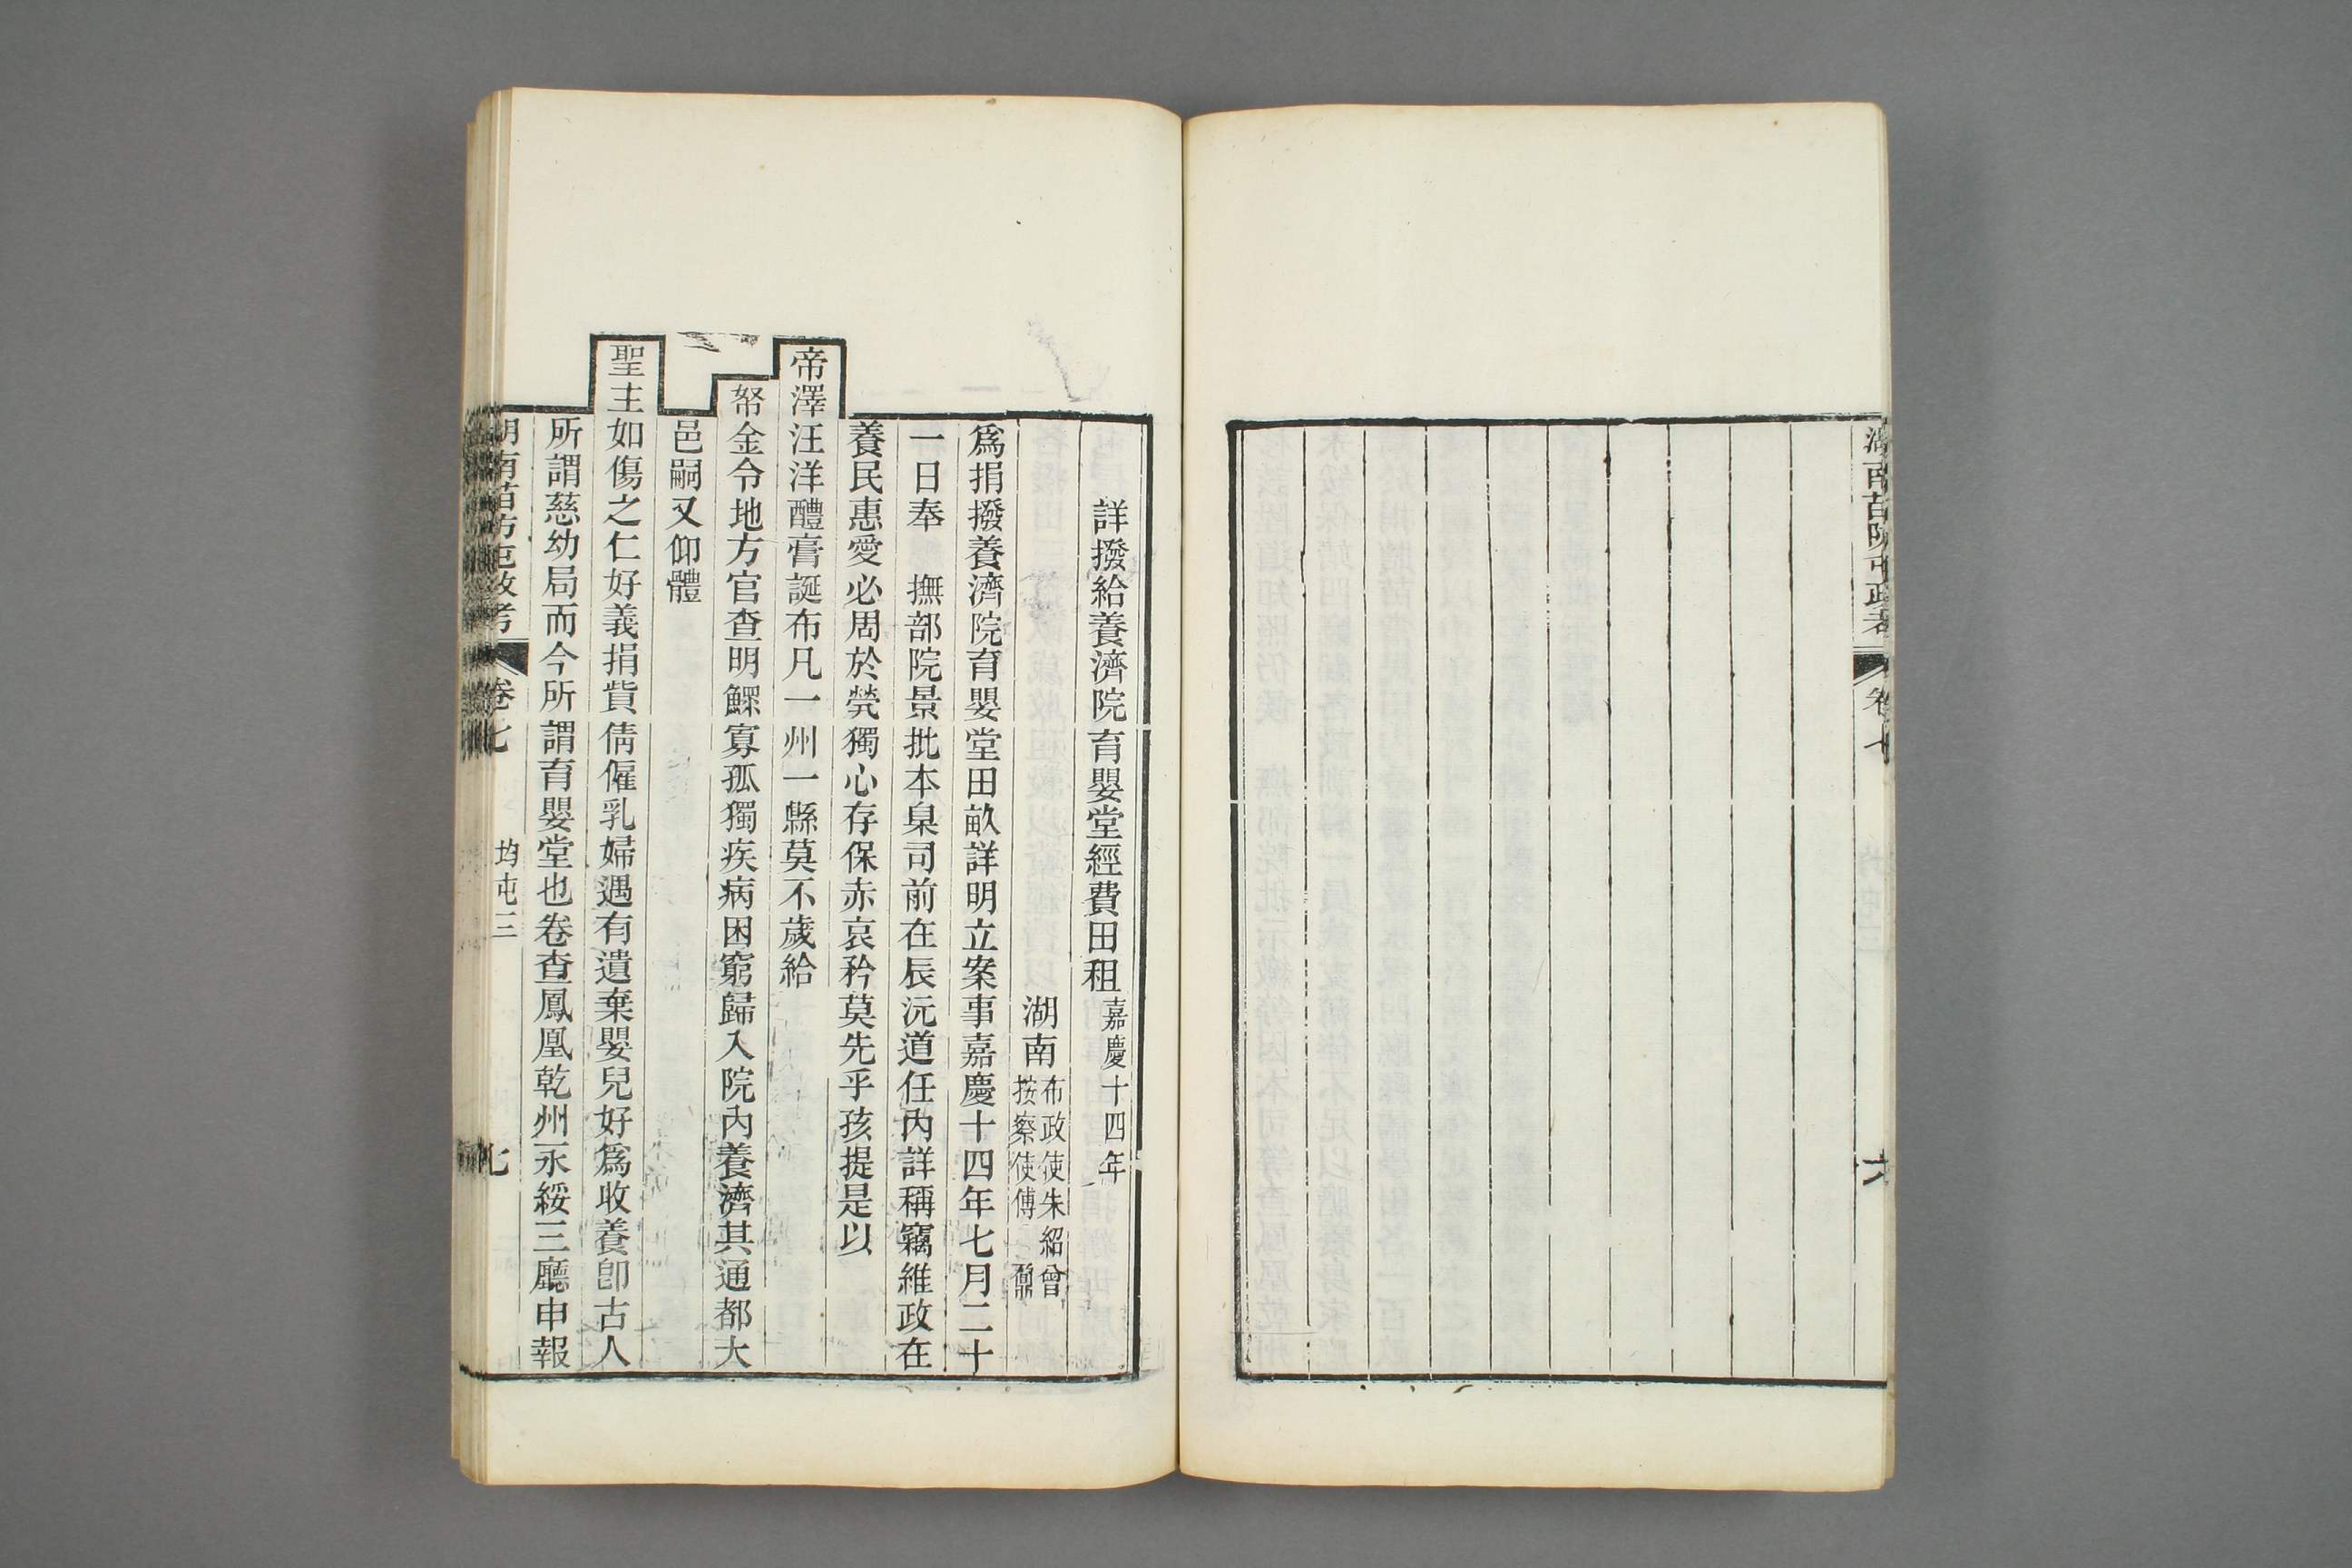 湖南苗防屯政考
卷七
六
詳撥給養濟院育嬰堂經費田租嘉慶十四年
湖南布政使朱紹曾
按察使傅鼐
爲捐撥養濟院育嬰堂田畝詳明立案事嘉慶十四年七月二十
一日奉 撫部院景批本臬司前在辰沅道任內詳稱竊維政在
養民惠愛必周於煢獨心存保赤哀矜莫先乎孩提是以
帝澤汪洋醴膏誕布凡一州一縣莫不歲給
帑金令地方官查明鰥寡孤獨疾病困窮歸入院內養濟其通都大
邑嗣又仰體
聖主如傷之仁好義捐貲倩僱乳婦遇有遺棄嬰兒好爲收養卽古人
所謂慈幼局而今所謂育嬰堂也卷查鳳凰乾州永綏三廳申報
湖南苗防屯政考
卷七
均屯三
七